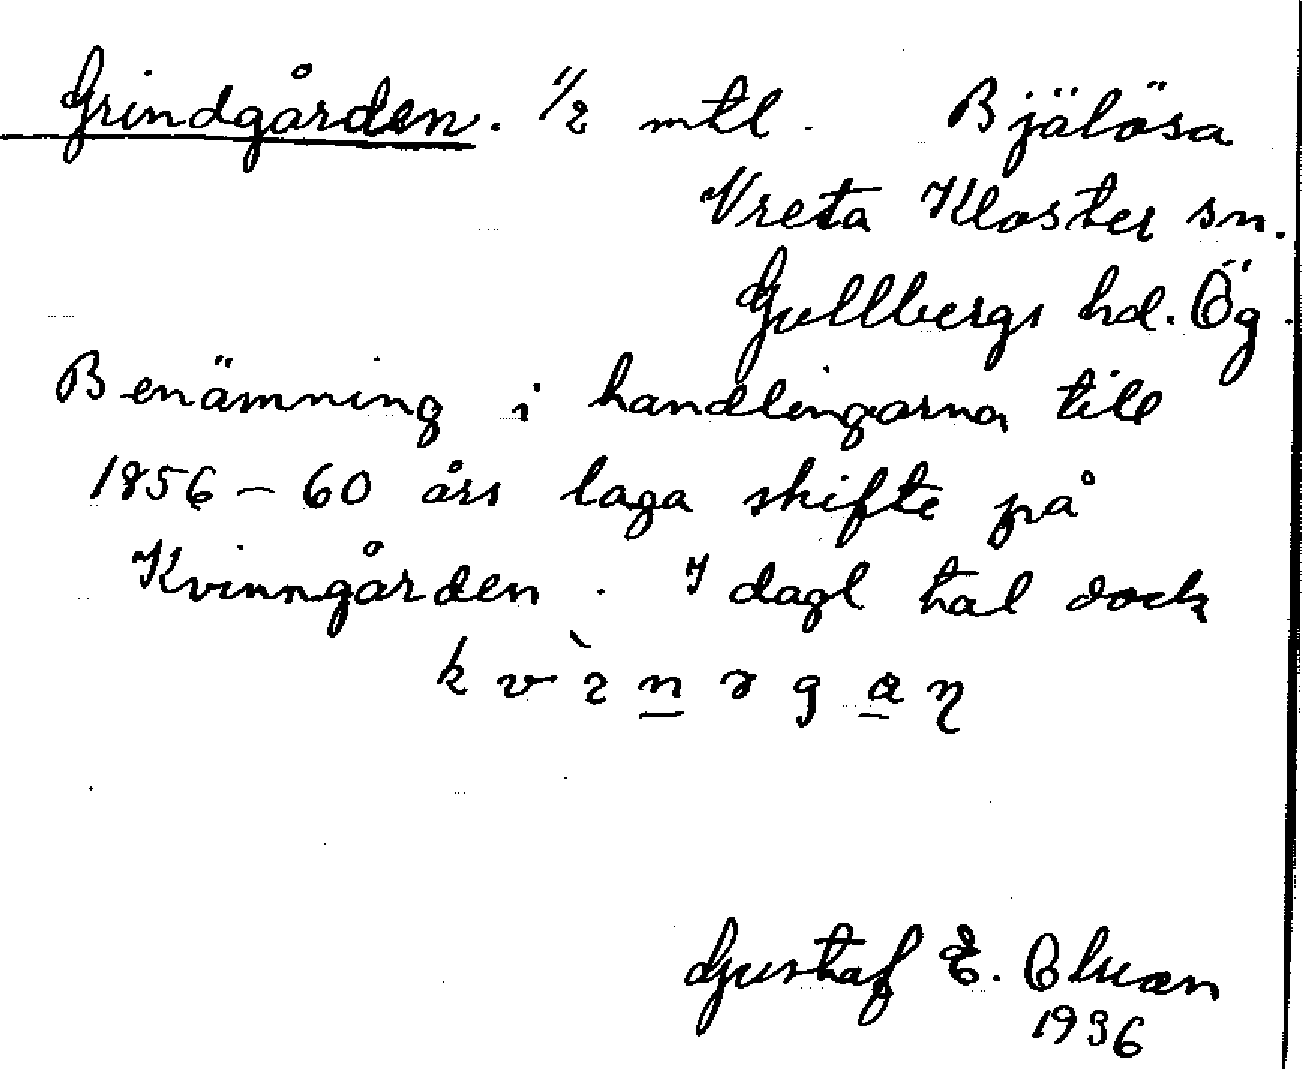 Grindgården. 1/2 mtl. Bjälösa
Vreta Kloster sn.
Gullbergs hd. Ög.
Benämning i handlingarna till
1856-60 års laga skifte på
Kvinngården. I dagl tal dock
Gustaf E. Olsson
1936